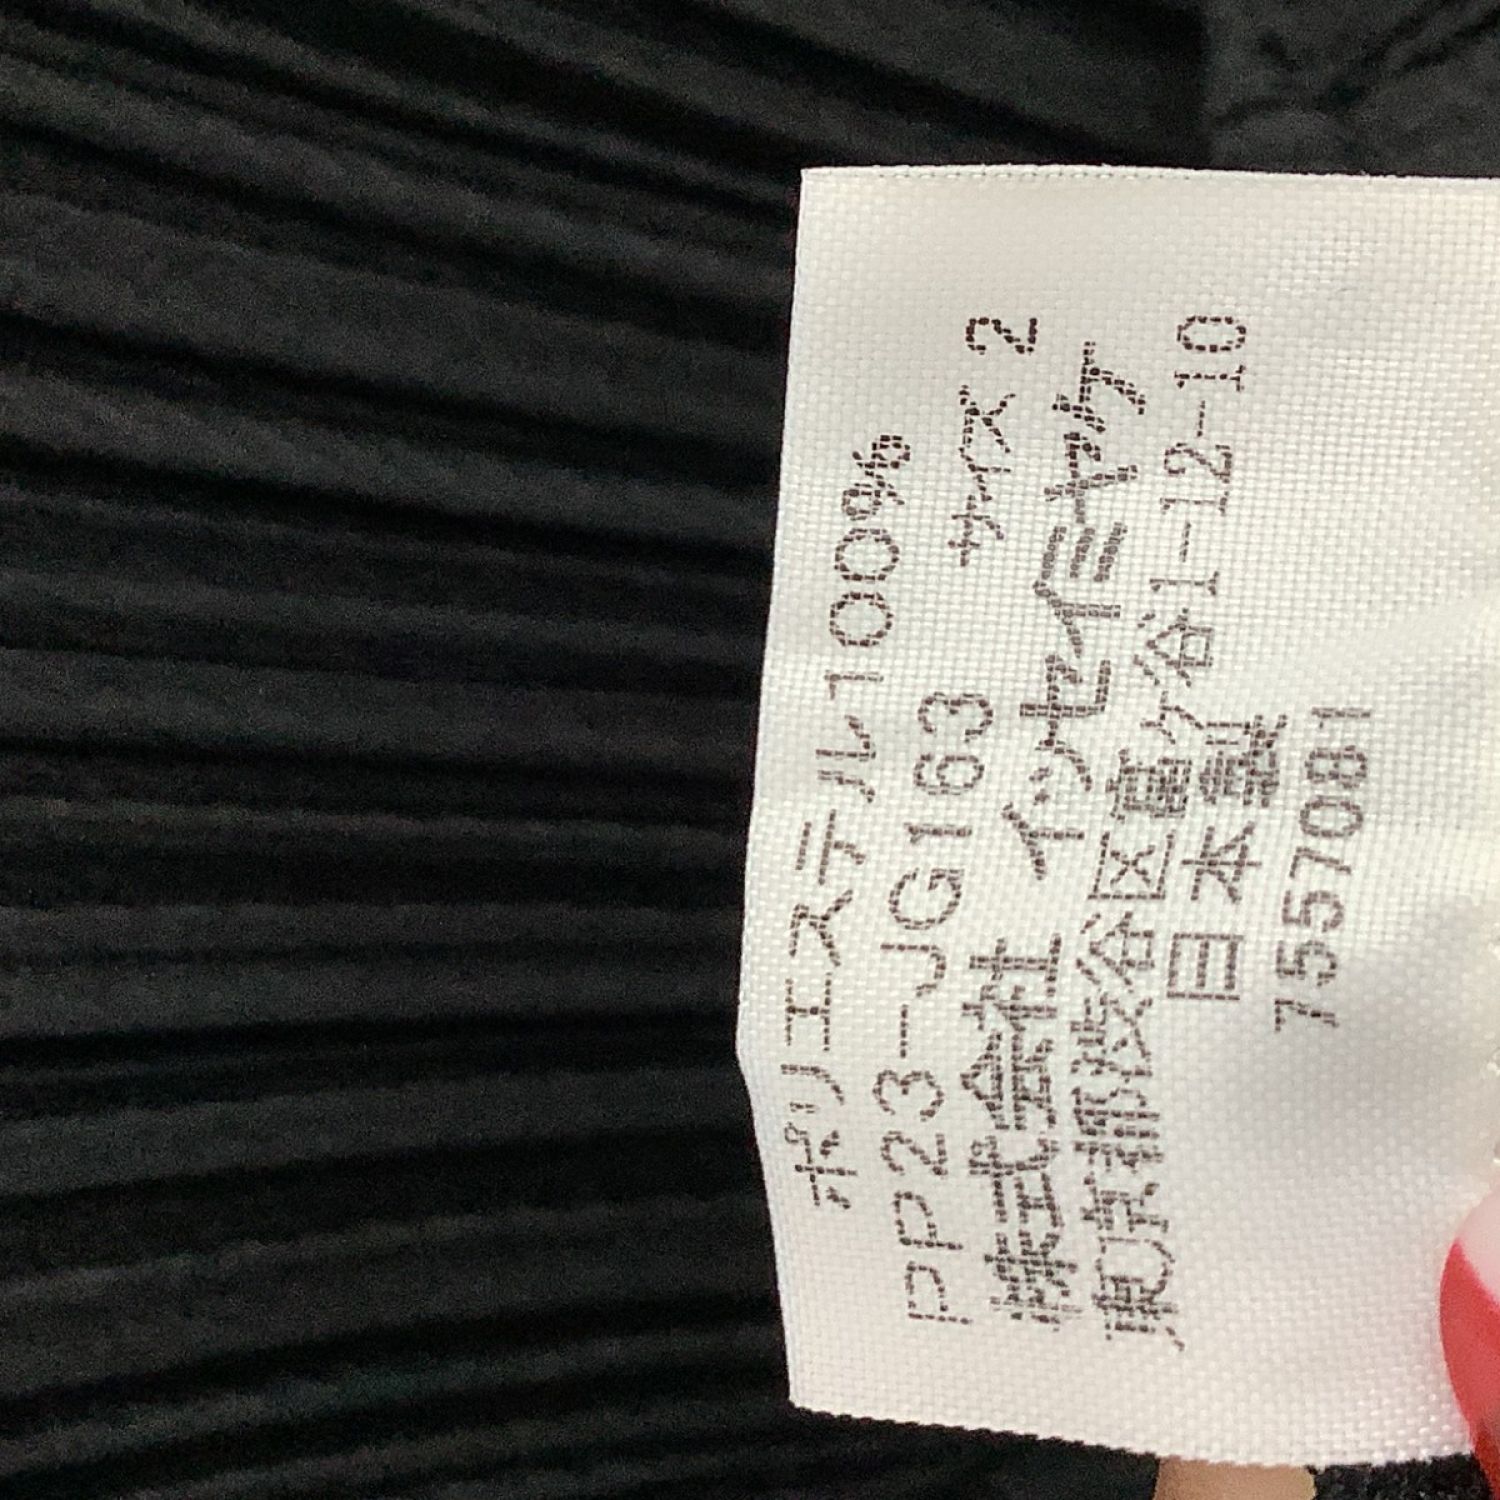 ポリエステル100%
PP23-JG163 サイズ 2
株式会社 イッセイミヤケ
東京都渋谷区富ケ谷1-12-10
日本製
7557081